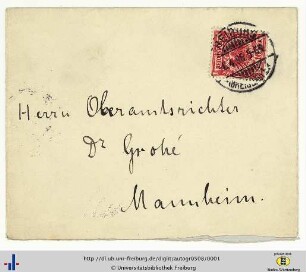 Herrn Oberamtsrichter
Dr Grohé
Mannheim.
http://dl.ub.uni-freiburg.de/diglit/autogr0508/0001
© Universitätsbibliothek Freiburg